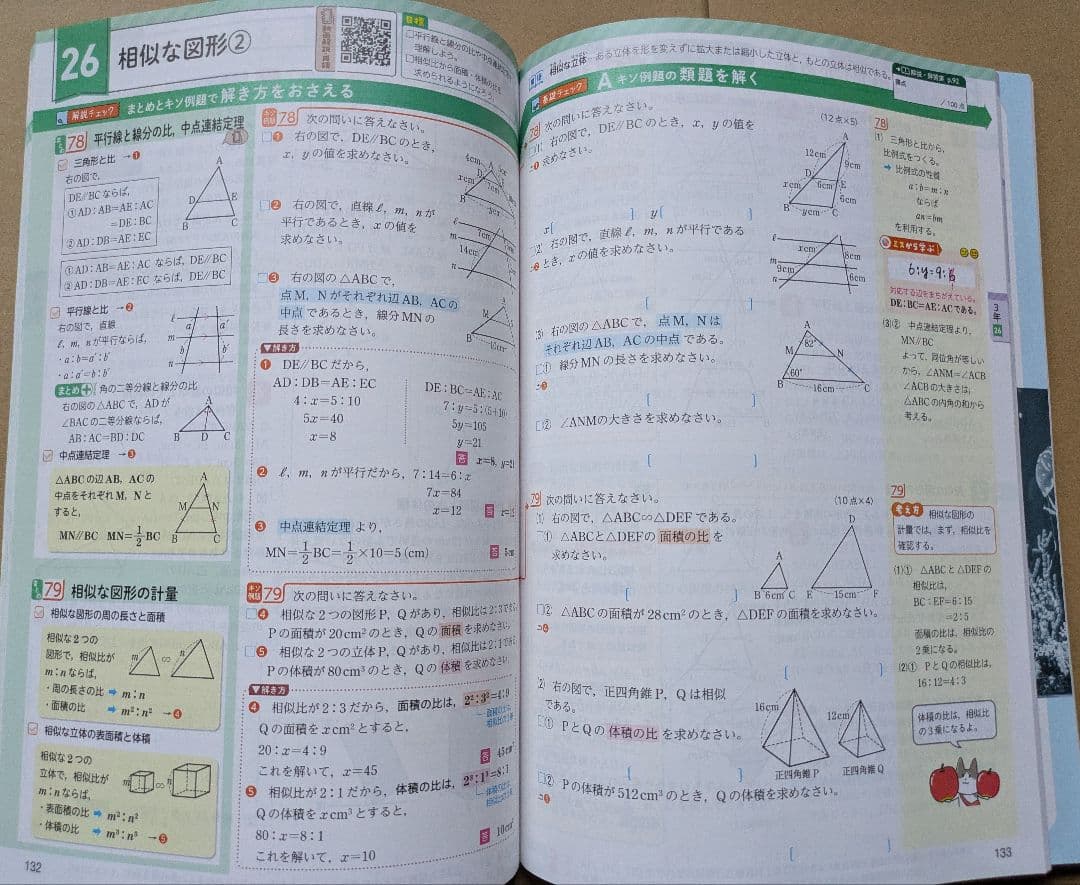 26
相似な図形②
動画解説・再確
目標
□平行線と線分の比や中点連結定理を
理解しよう。
□相似比から面積・体積の比を
求められるようになろう。
解説チェック
まとめとキソ例題で解き方をおさえる
まとめ 78 平行線と線分の比,中点連結定理
三角形と比 →❶
右の図で,
DE//BCならば,
①AD:AB=AE:AC
=DE:BC
②AD:DB=AE:EC
A
D
E
B
C
①AD:AB=AE:AC ならば, DE//BC
②AD:DB=AE:EC ならば, DE//BC
平行線と比 →❷
右の図で, 直線
ℓ, m, nが平行ならば,
・a:b=a′:b′
・a:a′=b:b′
ℓ
m
n
a
a′
b
b′
まとめ+ 角の二等分線と線分の比
右の図の△ABCで, ADが
∠BACの二等分線ならば,
AB:AC=BD:DC
A
B D C
中点連結定理 →❸
△ABCの辺AB, ACの
中点をそれぞれM, Nと
すると,
MN//BC MN=1/2BC
A
M
N
B
C
まとめ 79 相似な図形の計量
相似な図形の周の長さと面積
相似な2つの
図形で, 相似比が
m:nならば,
・周の長さの比 ➡ m:n
・面積の比 ➡ m²:n² →❹
m ∽ n
相似な立体の表面積と体積
相似な2つの
立体で, 相似比が
m:nならば,
・表面積の比 ➡ m²:n²
・体積の比 ➡ m³:n³ →❺
m ∽ n
132
キソ例題 78 次の問いに答えなさい。
□❶ 右の図で, DE//BCのとき,
x, yの値を求めなさい。
4cm
A
D
7cm
xcm
B
ycm
□❷ 右の図で, 直線ℓ, m, nが
平行であるとき, xの値を
求めなさい。
ℓ
m
n
7cm
14cm
□❸ 右の図の△ABCで,
点M, Nがそれぞれ辺AB, ACの
中点であるとき, 線分MNの
長さを求めなさい。
M
B
10cm
▼解き方
❶ DE//BCだから,
AD:DB=AE:EC
4:x=5:10
5x=40
x=8
DE:BC=AE:AC
7:y=5:(5+10)
5y=105
y=21
答 x=8, y=21
❷ ℓ, m, nが平行だから, 7:14=6:x
7x=84
x=12
答 x=12
❸ 中点連結定理 より,
MN=1/2BC=1/2×10=5(cm)
答 5cm
キソ例題 79 次の問いに答えなさい。
□❹ 相似な2つの図形P, Qがあり, 相似比は2:3である。
Pの面積が20cm²のとき, Qの面積を求めなさい。
□❺ 相似な2つの立体P, Qがあり, 相似比は2:1である。
Pの体積が80cm³のとき, Qの体積を求めなさい。
▼解き方
❹ 相似比が2:3だから, 面積の比は, 2²:3²=4:9
Qの面積をxcm²とすると,
20:x=4:9
これを解いて, x=45
答 45cm²
❺ 相似比が2:1だから, 体積の比は, 2³:1³=8:1
Qの体積をxcm³とすると,
80:x=8:1
これを解いて, x=10
答 10cm³
相似な立体…ある立体を形を変えずに拡大または縮小した立体と, もとの立体は相似である。
基礎チェック
A キソ例題の類題を解く
解説・解答集 p.92
得点
/100点
78 次の問いに答えなさい。
(12点×5)
(1) 右の図で, DE//BCのとき, x, yの値を
求めなさい。
A
12cm
9cm
D
6cm
E
xcm
6cm
B
ycm
C
x[
] y[
]
(2) 右の図で, 直線ℓ, m, nが平行である
とき, xの値を求めなさい。
ℓ
m
n
xcm
8cm
9cm
6cm
[ ]
(3) 右の図の△ABCで, 点M, Nは
それぞれ辺AB, ACの中点である。
□① 線分MNの長さを求めなさい。
A
82°
M
N
60°
B
16cm
C
[ ]
□② ∠ANMの大きさを求めなさい。
[ ]
79 次の問いに答えなさい。
(10点×4)
(1) 右の図で, △ABC∽△DEFである。
□① △ABCと△DEFの面積の比を
求めなさい。
A
B 6cm C
D
E 15cm F
[ ]
□② △ABCの面積が28cm²のとき, △DEFの面積を求めなさい。
[ ]
(2) 右の図で, 正四角錐P, Qは相似
である。
□① PとQの体積の比を求めなさい。
16cm
12cm
正四角錐P
正四角錐Q
[ ]
□② Pの体積が512cm³のとき, Qの体積を求めなさい。
[ ]
78
(1) 三角形と比から,
比例式をつくる。
➡ 比例式の性質
a:b=m:n
ならば
an=bm
を利用する。
ミスから学ぶ
6:y=9:6
対応する辺をまちがえている。
DE:BC=AE:ACである。
(3)② 中点連結定理より,
MN//BC
よって, 同位角が等しい
から, ∠ANM=∠ACB
∠ACBの大きさは,
△ABCの内角の和から
考える。
3年
26
79
考え方
相似な図形の
計量では, まず, 相似比を
確認する。
(1)① △ABCと△DEFの
相似比は,
BC:EF=6:15
=2:5
面積の比は, 相似比の
2乗になる。
(2)① PとQの相似比は,
16:12=4:3
体積の比は, 相似比
の3乗になるよ。
133